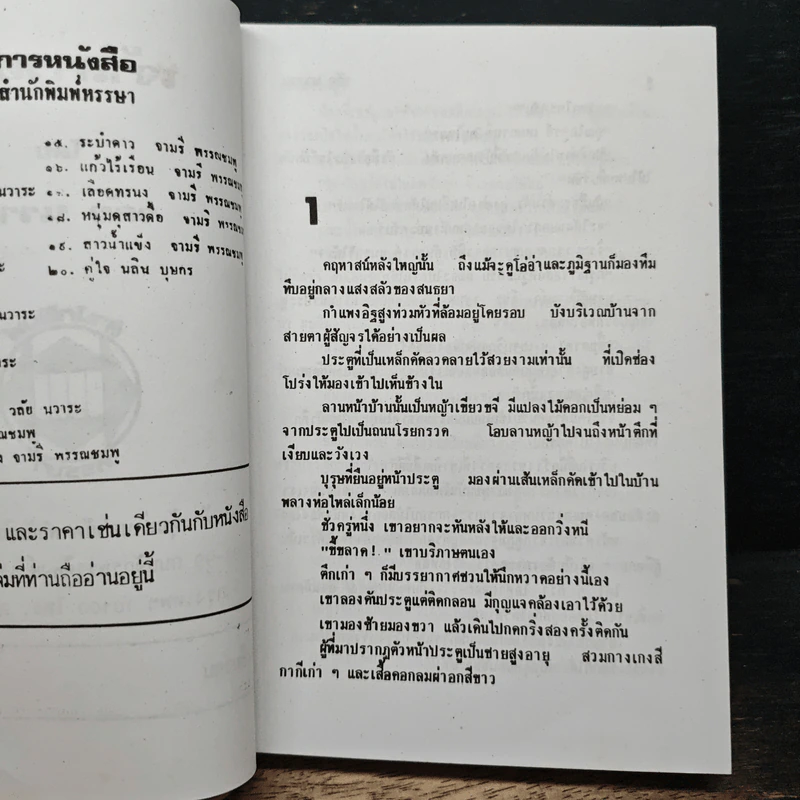 การหนังสือ
สำนักพิมพ์หรรษา
๑๕. ระบำดาว จามรี พรรณชมพู
๑๖. แก้วไร้เรือน จามรี พรรณชมพู
นวาระ ๑๗. เลือดทรนง จามรี พรรณชมพู
๑๘. หนุ่มดุสาวดื้อ จามรี พรรณชมพู
๑๙. สาวน้ำแข็ง จามรี พรรณชมพู
๒๐. คู่ใจ นลิน บุษกร
นวาระ
าระ
วลัย นวาระ
ณชมพู
ง จามรี พรรณชมพู
และราคาเช่นเดียวกันกับหนังสือ
ล่มที่ท่านถืออ่านอยู่นี้
1
คฤหาสน์หลังใหญ่นั้น ถึงแม้จะดูโอ่อ่าและภูมิฐานก็มองทึม
ทึบอยู่กลางแสงสลัวของสนธยา
กำแพงอิฐสูงท่วมหัวที่ล้อมอยู่โดยรอบ บังบริเวณบ้านจาก
สายตาผู้สัญจรได้อย่างเป็นผล
ประตูที่เป็นเหล็กดัดลวดลายไว้สวยงามเท่านั้น ที่เปิดช่อง
โปร่งให้มองเข้าไปเห็นข้างใน
ลานหน้าบ้านนั้นเป็นหญ้าเขียวขจี มีแปลงไม้ดอกเป็นหย่อม ๆ
จากประตูไปเป็นถนนโรยกรวด โอบลานหญ้าไปจนถึงหน้าตึกที่
เงียบและวังเวง
บุรุษที่ยืนอยู่หน้าประตู มองผ่านเส้นเหล็กดัดเข้าไปในบ้าน
พลางห่อไหล่เล็กน้อย
ชั่วครู่หนึ่ง เขาอยากจะหันหลังให้และออกวิ่งหนี
"ขี้ขลาด!" เขาบริภาษตนเอง
ตึกเก่า ๆ ก็มีบรรยากาศชวนให้นึกหวาดอย่างนี้เอง
เขาลองดันประตูแต่ติดกลอน มีกุญแจคล้องเอาไว้ด้วย
เขามองซ้ายมองขวา แล้วเดินไปกดกริ่งสองครั้งติดกัน
ผู้ที่มาปรากฏตัวหน้าประตูเป็นชายสูงอายุ สวมกางเกงสี
กากีเก่า ๆ และเสื้อคอกลมผ่าอกสีขาว